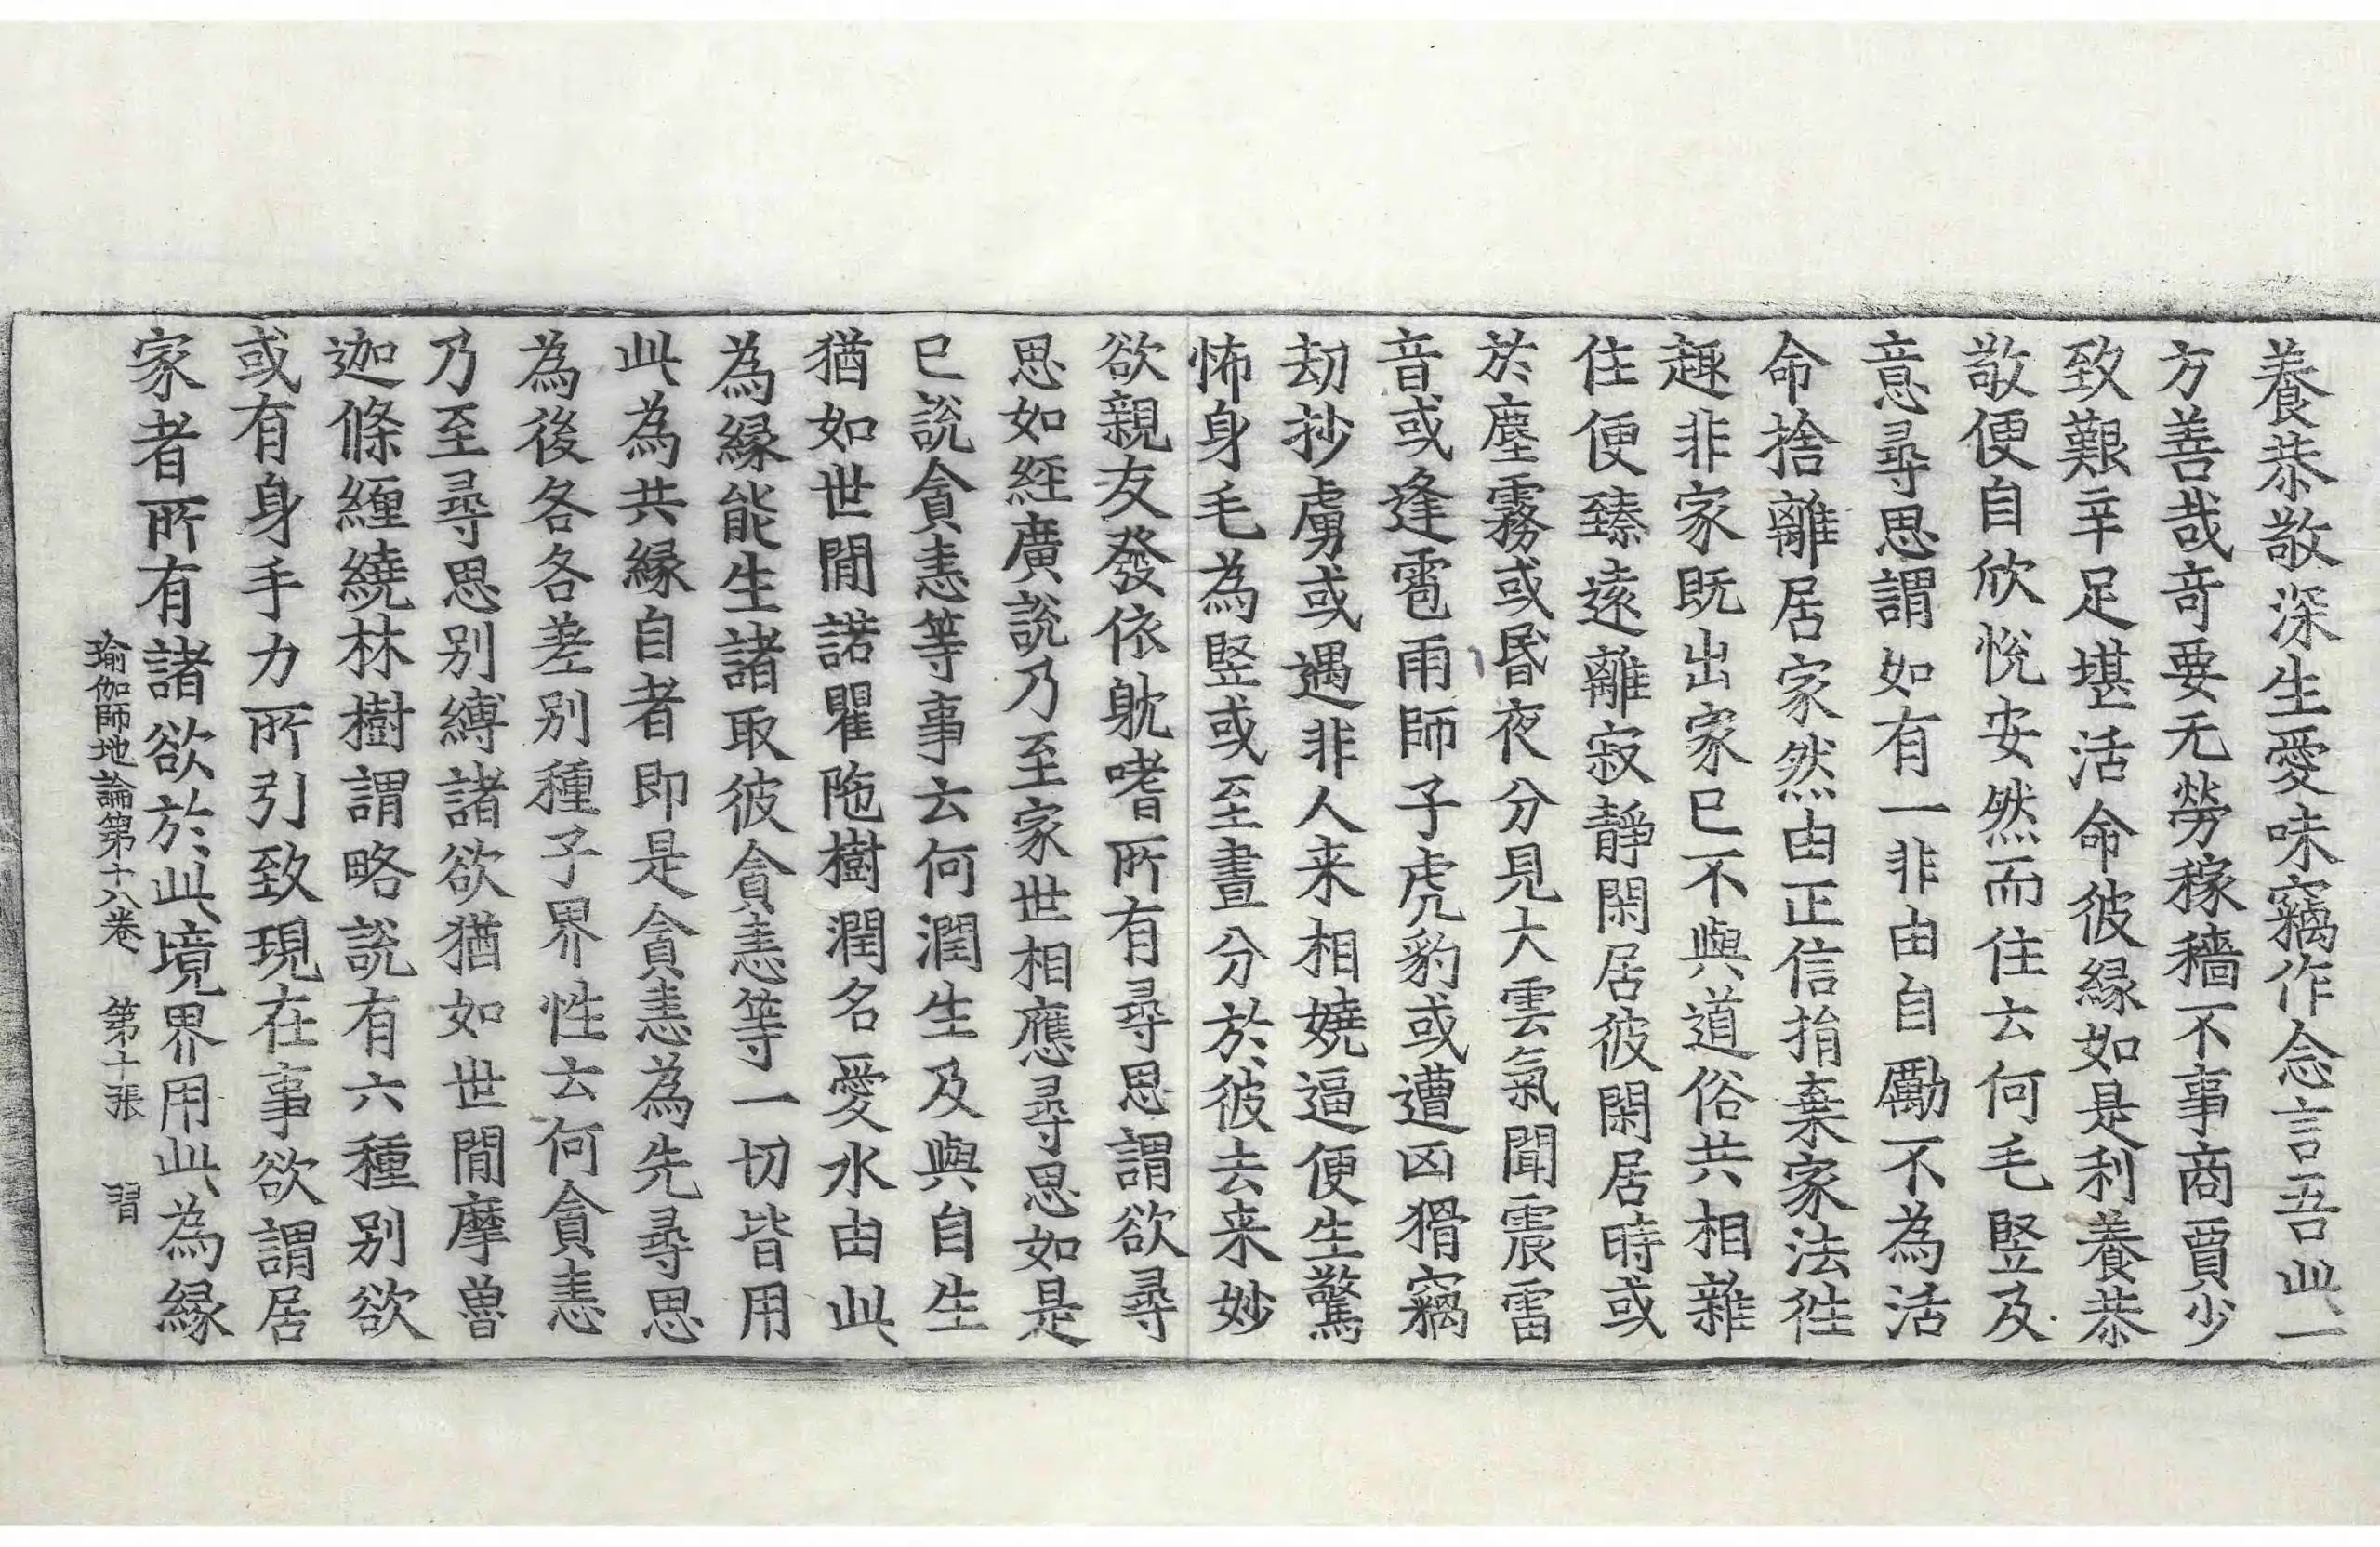 養恭敬深生愛味竊作念言吾此一
方善哉奇要无勞稼穡不事商賈少
致艱辛足堪活命彼緣如是利養恭
敬便自欣悅安然而住云何毛竪及
意尋思謂如有一非由自勵不為活
命捨離居家然由正信捐棄家法往
趣非家既出家已不與道俗共相雜
住便臻遠離寂靜閑居彼閑居時或
於塵霧或昏夜分見大雲氣聞震雷
音或逢雹雨師子虎豹或遭凶猾竊
劫抄虜或遇非人来相嬈逼便生驚
怖身毛為竪或至晝分於彼去来妙
欲親友發依躭嗜所有尋思謂欲尋
思如經廣說乃至家世相應尋思如是
已說貪恚等事云何潤生及與自生
猶如世間諾瞿陁樹潤名愛水由此
為緣能生諸取彼貪恚等一切皆用
此為共緣自者即是貪恚為先尋思
為後各各差別種子界性云何貪恚
乃至尋思別縛諸欲猶如世間摩魯
迦條纏繞林樹謂略說有六種別欲
或有身手力所引致現在事欲謂居
家者所有諸欲於此境界用此為緣
瑜伽師地論第十八卷　第十張　習